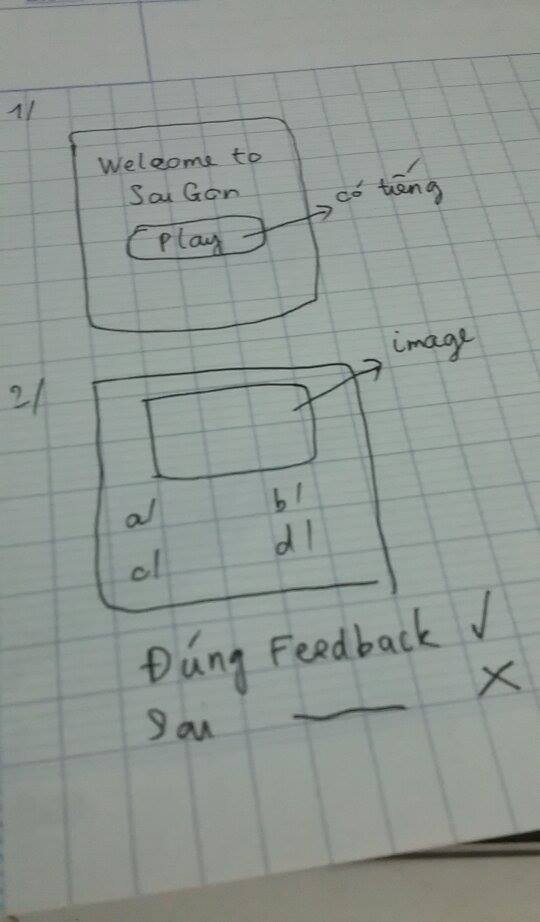 1/
Welcome to
Sai Gon
Play
có tiếng
2/
image
a/
b/
c/
d/
Đúng Feedback ✓
Sai —— X